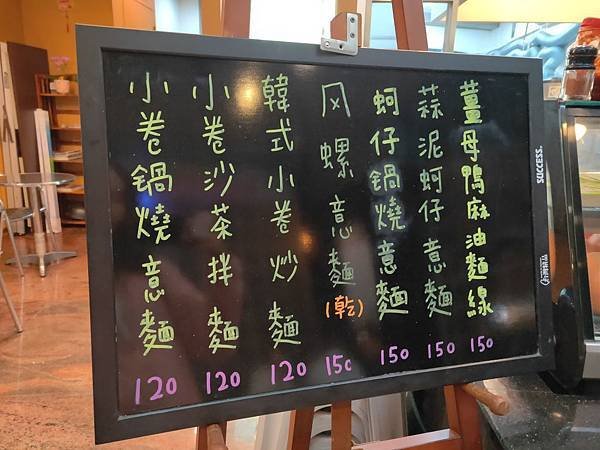 薑母鴨麻油麵線 150
蒜泥蚵仔意麵 150
蚵仔鍋燒意麵 150
风螺意麵(乾) 150
韓式小卷炒麵 120
小卷沙茶拌麵 120
小卷鍋燒意麵 120
SUCCESS